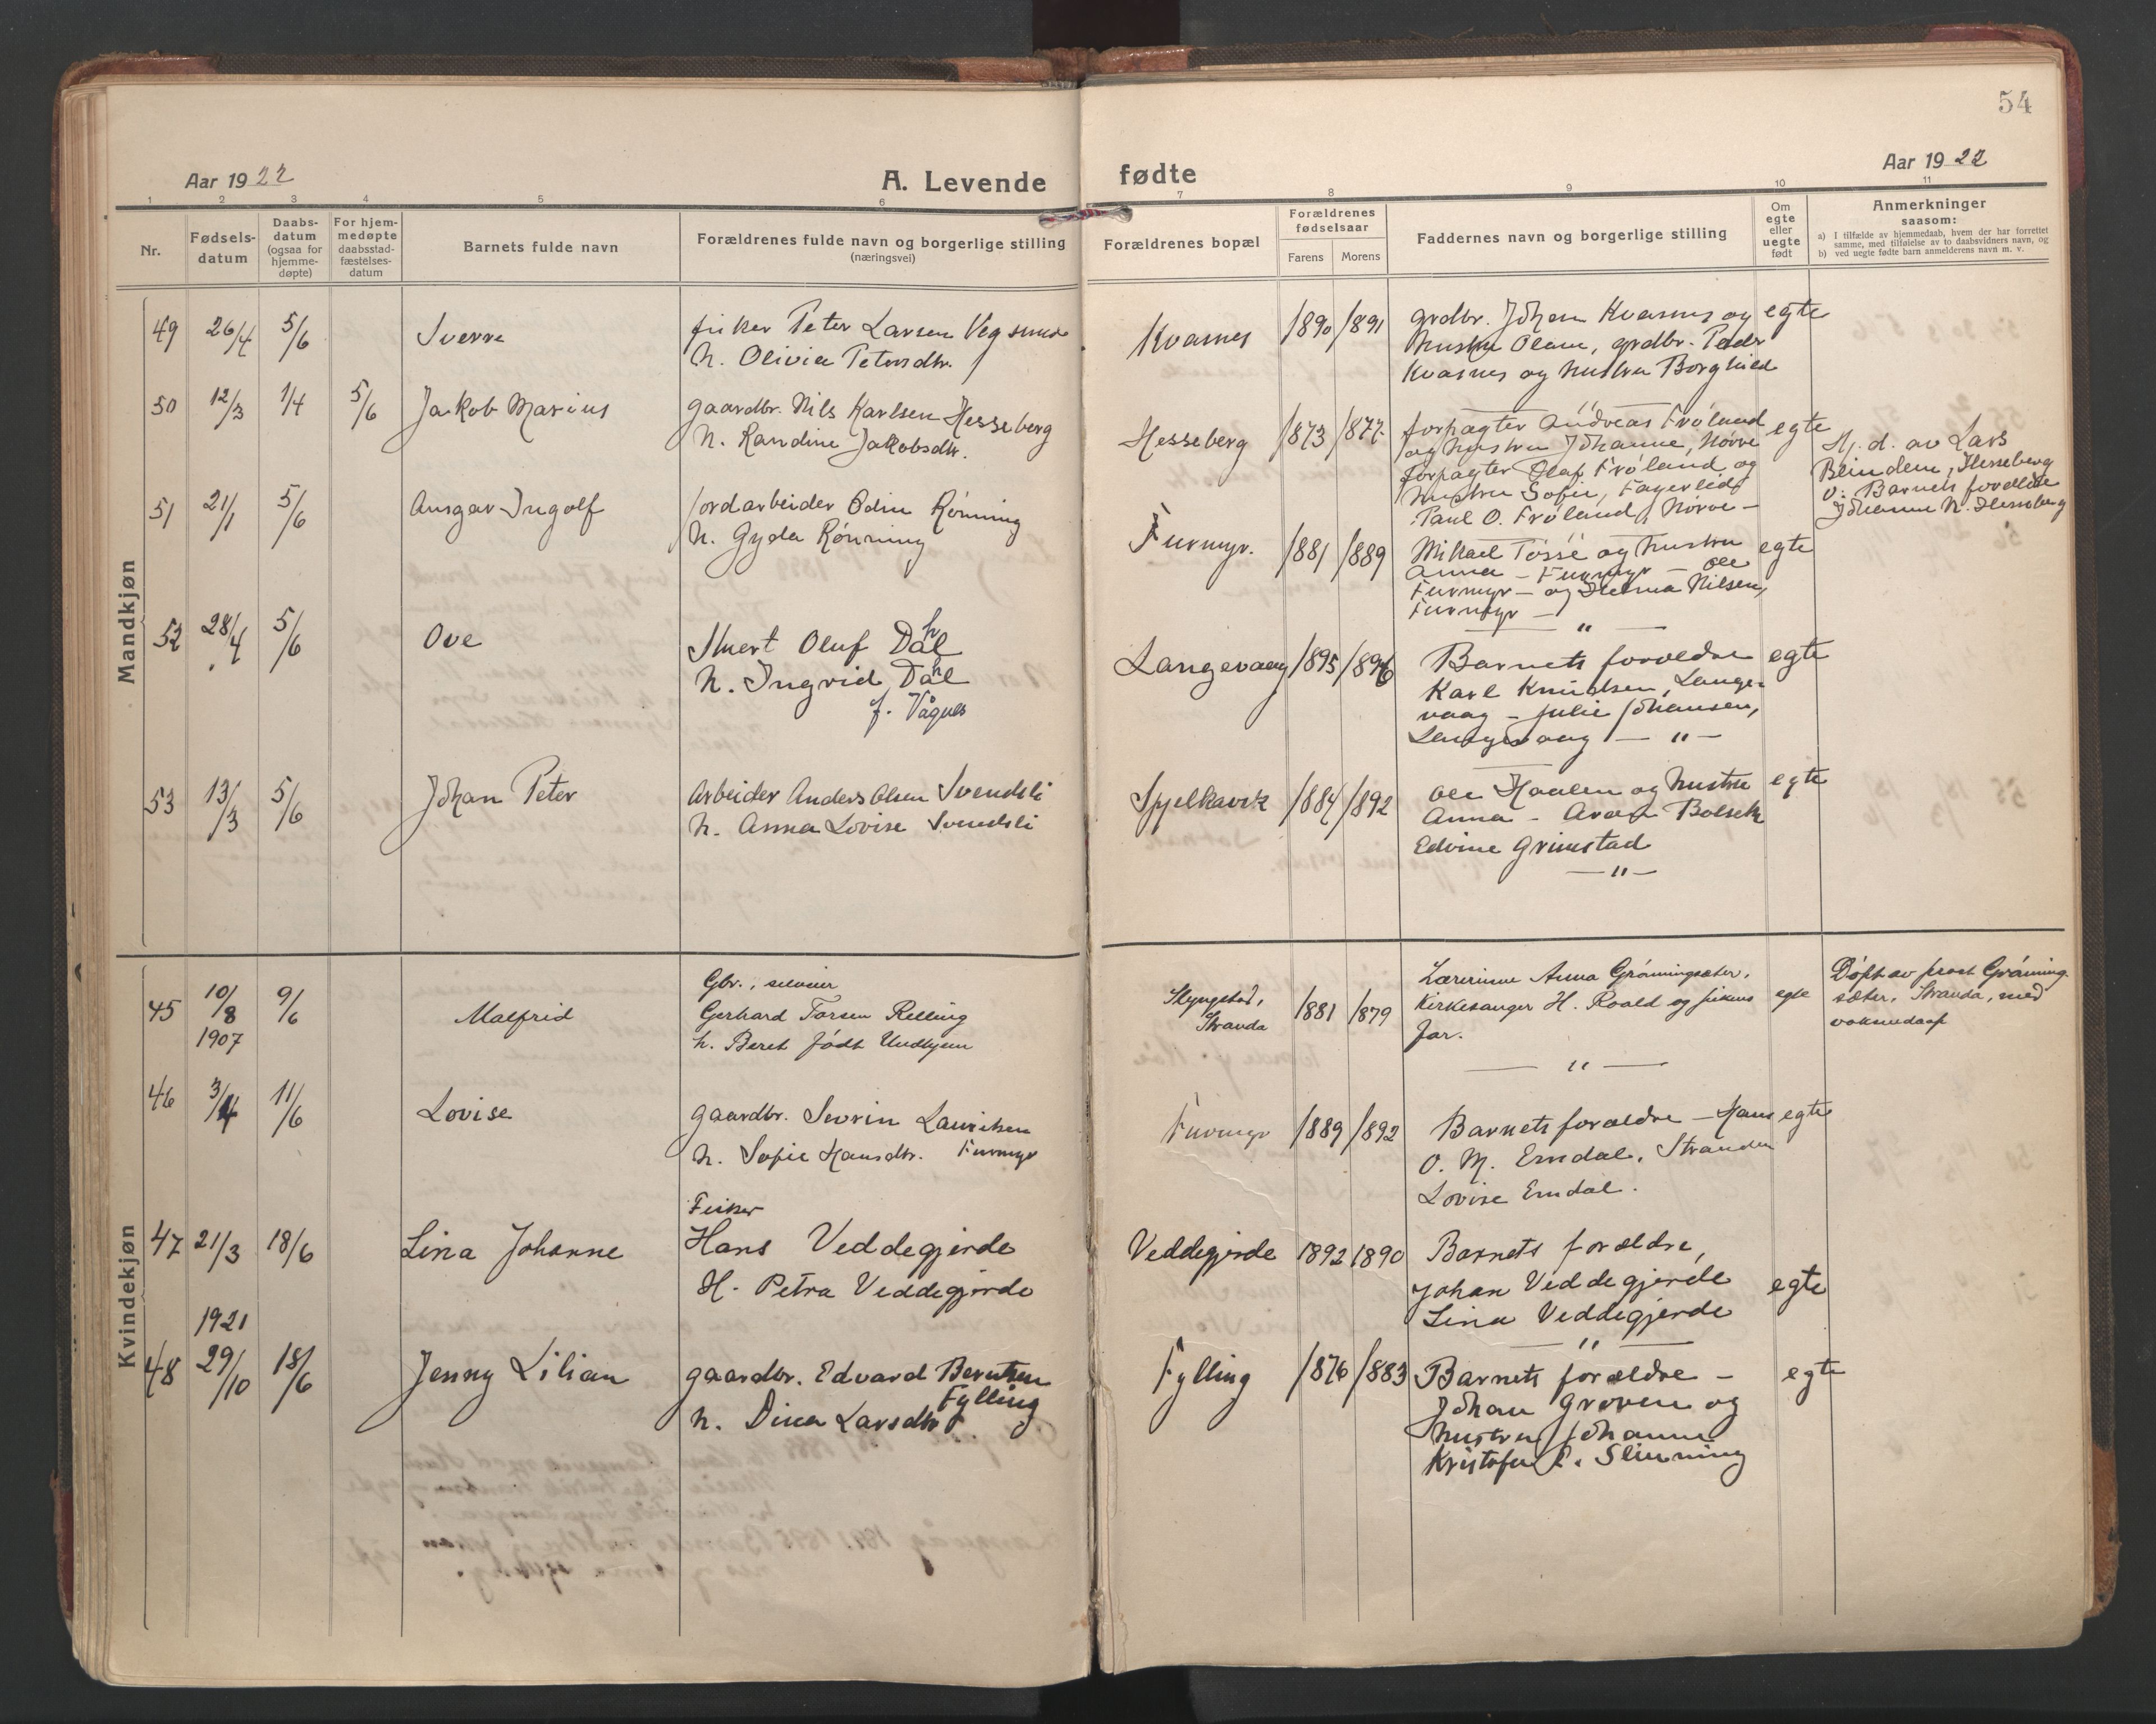 54
Aar 1922
A. Levende
fødte
Aar 1922
1 2 3 4 5 6 7 8 9 10 11
Nr.
Fødselsdatum
Daabsdatum
(ogsaa for
hjemmedøpte)
For hjemmedøpte
daabsstadfæstelsesdatum
Barnets fulde navn
Forældrenes fulde navn og borgerlige stilling
(næringsvei)
Forældrenes bopæl
Forældrenes
fødselsaar
Farens Morens
Faddernes navn og borgerlige stilling
Om
egte
eller
uegte
født
Anmerkninger
saasom:
a) I tilfælde av hjemmedaab, hvem der har forrettet
samme, med tilføielse av to daabsvidners navn, og
b) ved uegte fødte barn anmelderens navn m. v.
Mandkjøn
49 26/4 5/6 Sverre
fisker Peter Larsen Vegsund
h. Olivia Petersdtr.
Kvasnes 1890 1891
grdbr. Johan Kvasnes og
hustru Olave, grdbr. Peder
Kvasnes og hustru Borghild
egte
50 12/3 1/4 5/6 Jakob Marius
gaardbr. Nils Karlsen Hesseberg
h. Randine Jakobsdtr.
Hesseberg 1873 1877
forpagter Andreas Frøland
og hustru Johanne, Nørve
forpagter Olaf Frøland og
hustru Sofie, Fagerlid
Paul O. Frøland, Nørve –
egte
Hj. d. av Lars
Blindem, Hesseberg
v: Barnets forældre
Johanne N. Hesseberg
51 21/1 5/6 Ansgar Ingolf
Jordarbeider Odin Rønning
h. Gyda Rønning
Furmyr. 1881 1889
Mikael Tøsse og hustru
Anna – Furmyr – Ole
Furmyr – og Helma Nilsen,
Furmyr –
— " —
egte
52 28/4 5/6 Ove
Sivert Oluf Dahl
h. Ingrid Dahl
f. Vågnes
Langevaag 1895 1896
Barnets forældre
Karl Knudsen, Langevaag – Julie Johansen,
Langevaag — " —
egte
53 13/3 5/6 Johan Peter
Arbeider Anders Olsen Svendsli
h. Anna Lovise Svendsli
Spjelkavik 1884 1892
Ole Haalen og hustru
Anna – Aron Bolseth
Edvine Grimstad
— " —
egte
Kvindekjøn
45 10/8 1907 9/6 Malfrid
Gbr.,
Gerhard Torsen Relling
h. Beret født Undhjem
Skyngstad,
Stranda
1881 1879
Lærerinne Anna Grønningsæter,
Kirkesanger H. Roald og pikens
far.
— " —
egte
Døpt av prost Grønningsæter, Stranda, med
voksendaap
46 3/4 11/6 Lovise
gaardbr. Sevrin Lauritsen
h. Sofie Hansdtr. Furmyr
Furmyr 1889 1892
Barnets forældre – Hans
O. M. Emdal, Stranden
Lovise Emdal.
egte
47 21/3 18/6 Lina Johanne
Fisker
Hans Veddegjerde
H. Petra Veddegjerde
Veddegjerde 1892 1890
Barnets forældre,
Johan Veddegjerde
Lina Veddegjerde
— " —
egte
48 1921 29/10 18/6 Jenny Lilian
gaardbr. Edvard Berntsen
Fylling
h. Dina Larsdtr.
Fylling 1876 1883
Barnets forældre –
Johan Groven og
hustru Johanne
Kristofer P. Slinning
egte